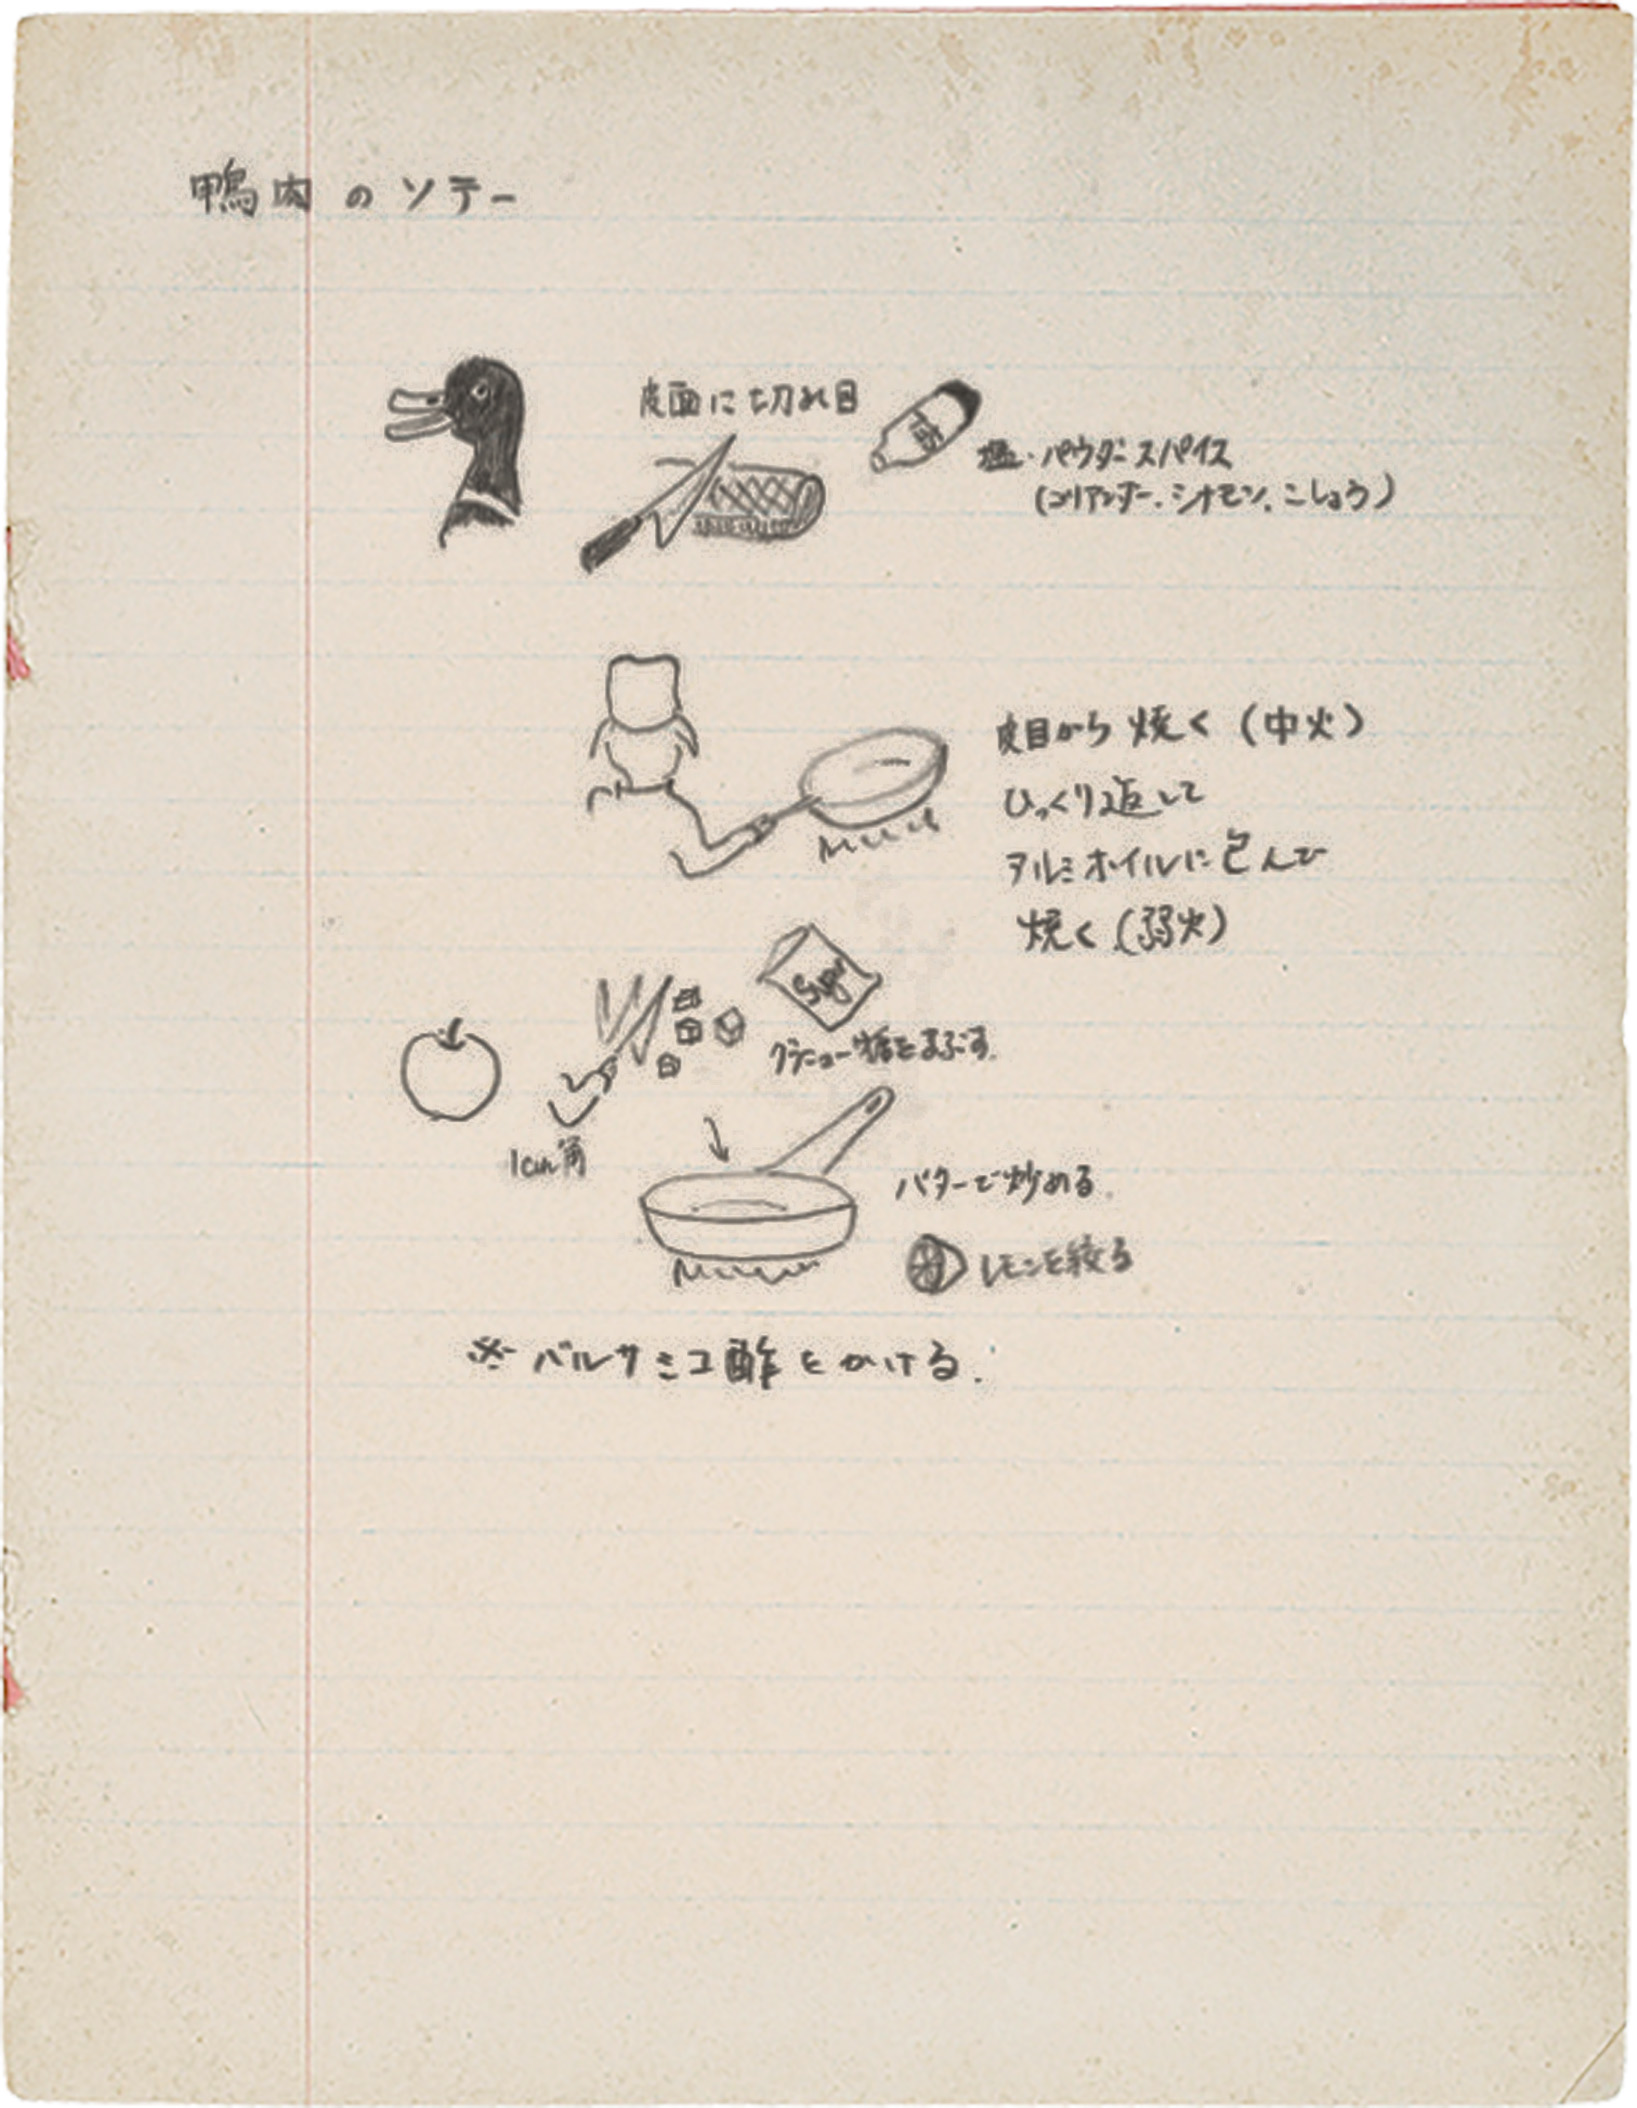 鴨肉のソテー
皮面に切れ目
塩・パウダースパイス
(コリアンダー、シナモン、こしょう)
皮目から焼く(中火)
ひっくり返して
アルミホイルに包んで
焼く(弱火)
グラニュー糖をまぶす.
1cm角
バターで炒める.
レモンを絞る
※バルサミコ酢をかける.